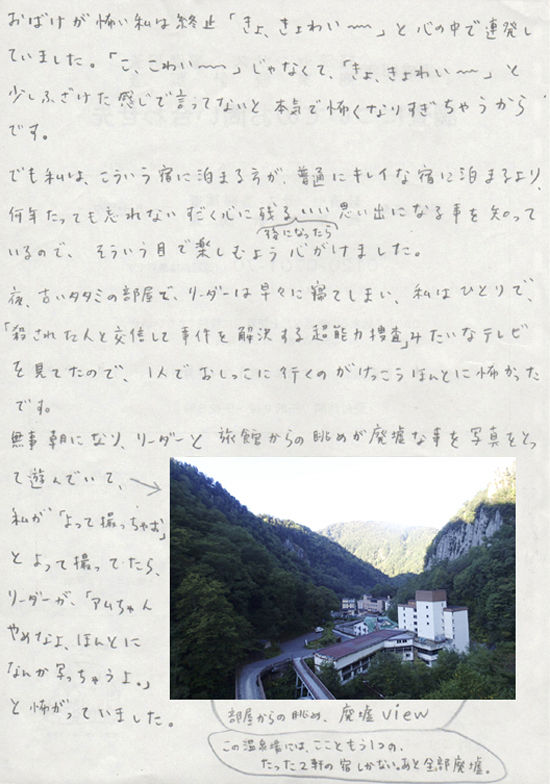 おばけが怖い私は終止「きょ、きょわい〜〜」と心の中で連発し
ていました。「こ、こわい〜〜」じゃなくて、「きょ、きょわい〜〜」と
少しふざけた感じで言ってないと本気で怖くなりすぎちゃうから
です。
でも私は、こういう宿に泊まる方が、普通にキレイな宿に泊まるより、
何年たっても忘れないすごく心に残るいい思い出になる事を知って
後になったら
いるので、そういう目で楽しむよう心がけました。
夜、古いタタミの部屋で、リーダーは早々に寝てしまい、私はひとりで、
「殺された人と交信して事件を解決する超能力捜査」みたいなテレビ
を見てたので、1人でおしっこに行くのがけっこうほんとに怖かった
です。
無事朝になり、リーダーと旅館からの眺めが廃墟な事を写真をとっ
て遊んでいて、
私が「よって撮っちゃお」
とよって撮ってたら、
リーダーが、「アムちゃん
やめなよ、ほんとに
なんか写っちゃうよ。」
と怖がっていました。
部屋からの眺め、廃墟view
この温泉場には、ここともう1つの、
たった2軒の宿しかない。あと全部廃墟。